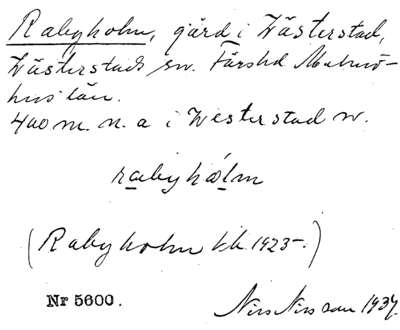 Rabyholm, gård i Västerstad,
Västerstads sn. Färshd Malmö-
hus län.
400 m. n. a i Westerstad n.
rabyhólm
(Rabyholm kk. 1925.)
Nr 5600. Nils Nilsson 1937.